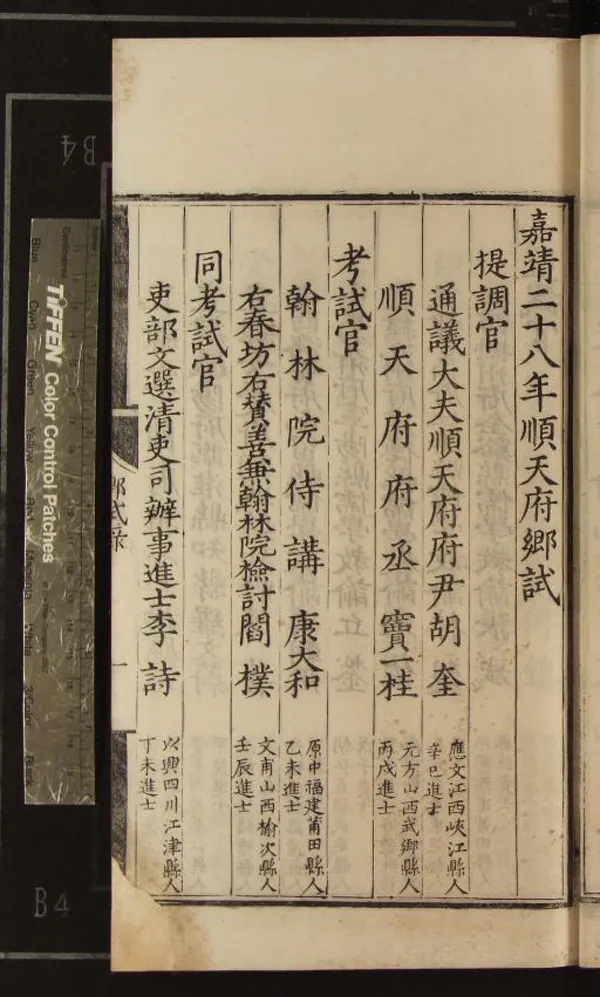 嘉靖二十八年順天府鄉試
提調官
通議大夫順天府府尹胡奎
應文江西峽江縣人
辛巳進士
順天府府丞竇一桂
元方山西武鄉縣人
丙戌進士
考試官
翰林院侍講康大和
原中福建莆田縣人
乙未進士
右春坊右贊善兼翰林院檢討閻樸
文甫山西榆次縣人
壬辰進士
同考試官
吏部文選清吏司辦事進士李詩
以興四川江津縣人
丁未進士
鄉試录
一
B4
B4
TIFFEN Color Control Patches